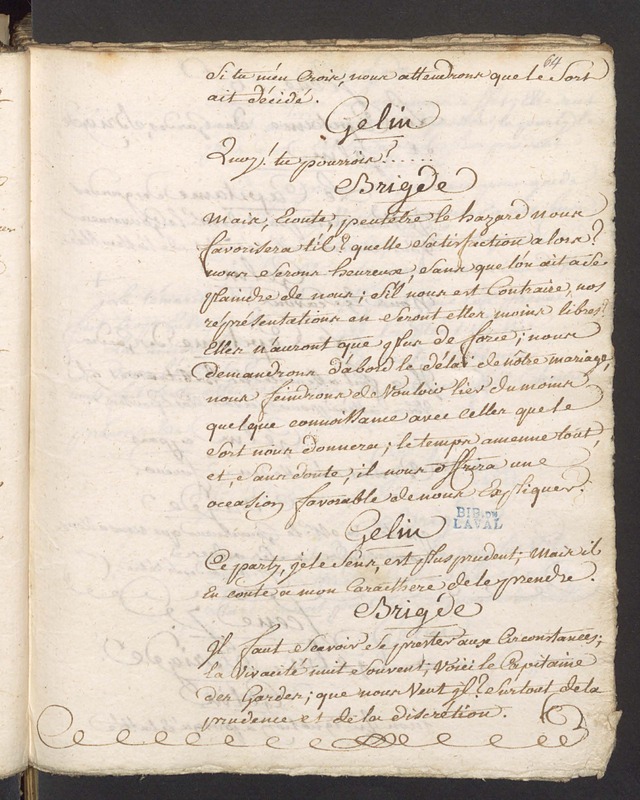 64
Si tu m'en Crois, nous attendrons que le Sort
ait décidé.
Gelin
Quoy! tu pourrois?......
Brigde
Mais, Ecoute, peutêtre le hazard nous
favorisera t'il? quelle satisfaction alors?
nous serons heureux, sans que l'on ait a se
plaindre de nous; s'il nous est Contraire, nos
représentations en seront elles moins libres?
elles n'auront que plus de force; nous
demandrons d'abord le délai de nôtre mariage,
nous feindrons de Vouloir lier du moins
quelque connoissance avec Celles que le
Sort nous donnera; le temps amenne tout,
et, sans doute, il nous offrira une
occasion favorable de nous Expliquer.
BIB. DE
LAVAL
Gelin
Ce party, je le Sens, est plus prudent; Mais il
En coute a mon Caracthere de le prendre.
Brigde
Il faut sçavoir se prester aux Circonstances;
la Vivacité nuit souvent; Voici le Capitaine
des Gardes; que nous Veut il? Surtout de la
prudence et de la discretion.